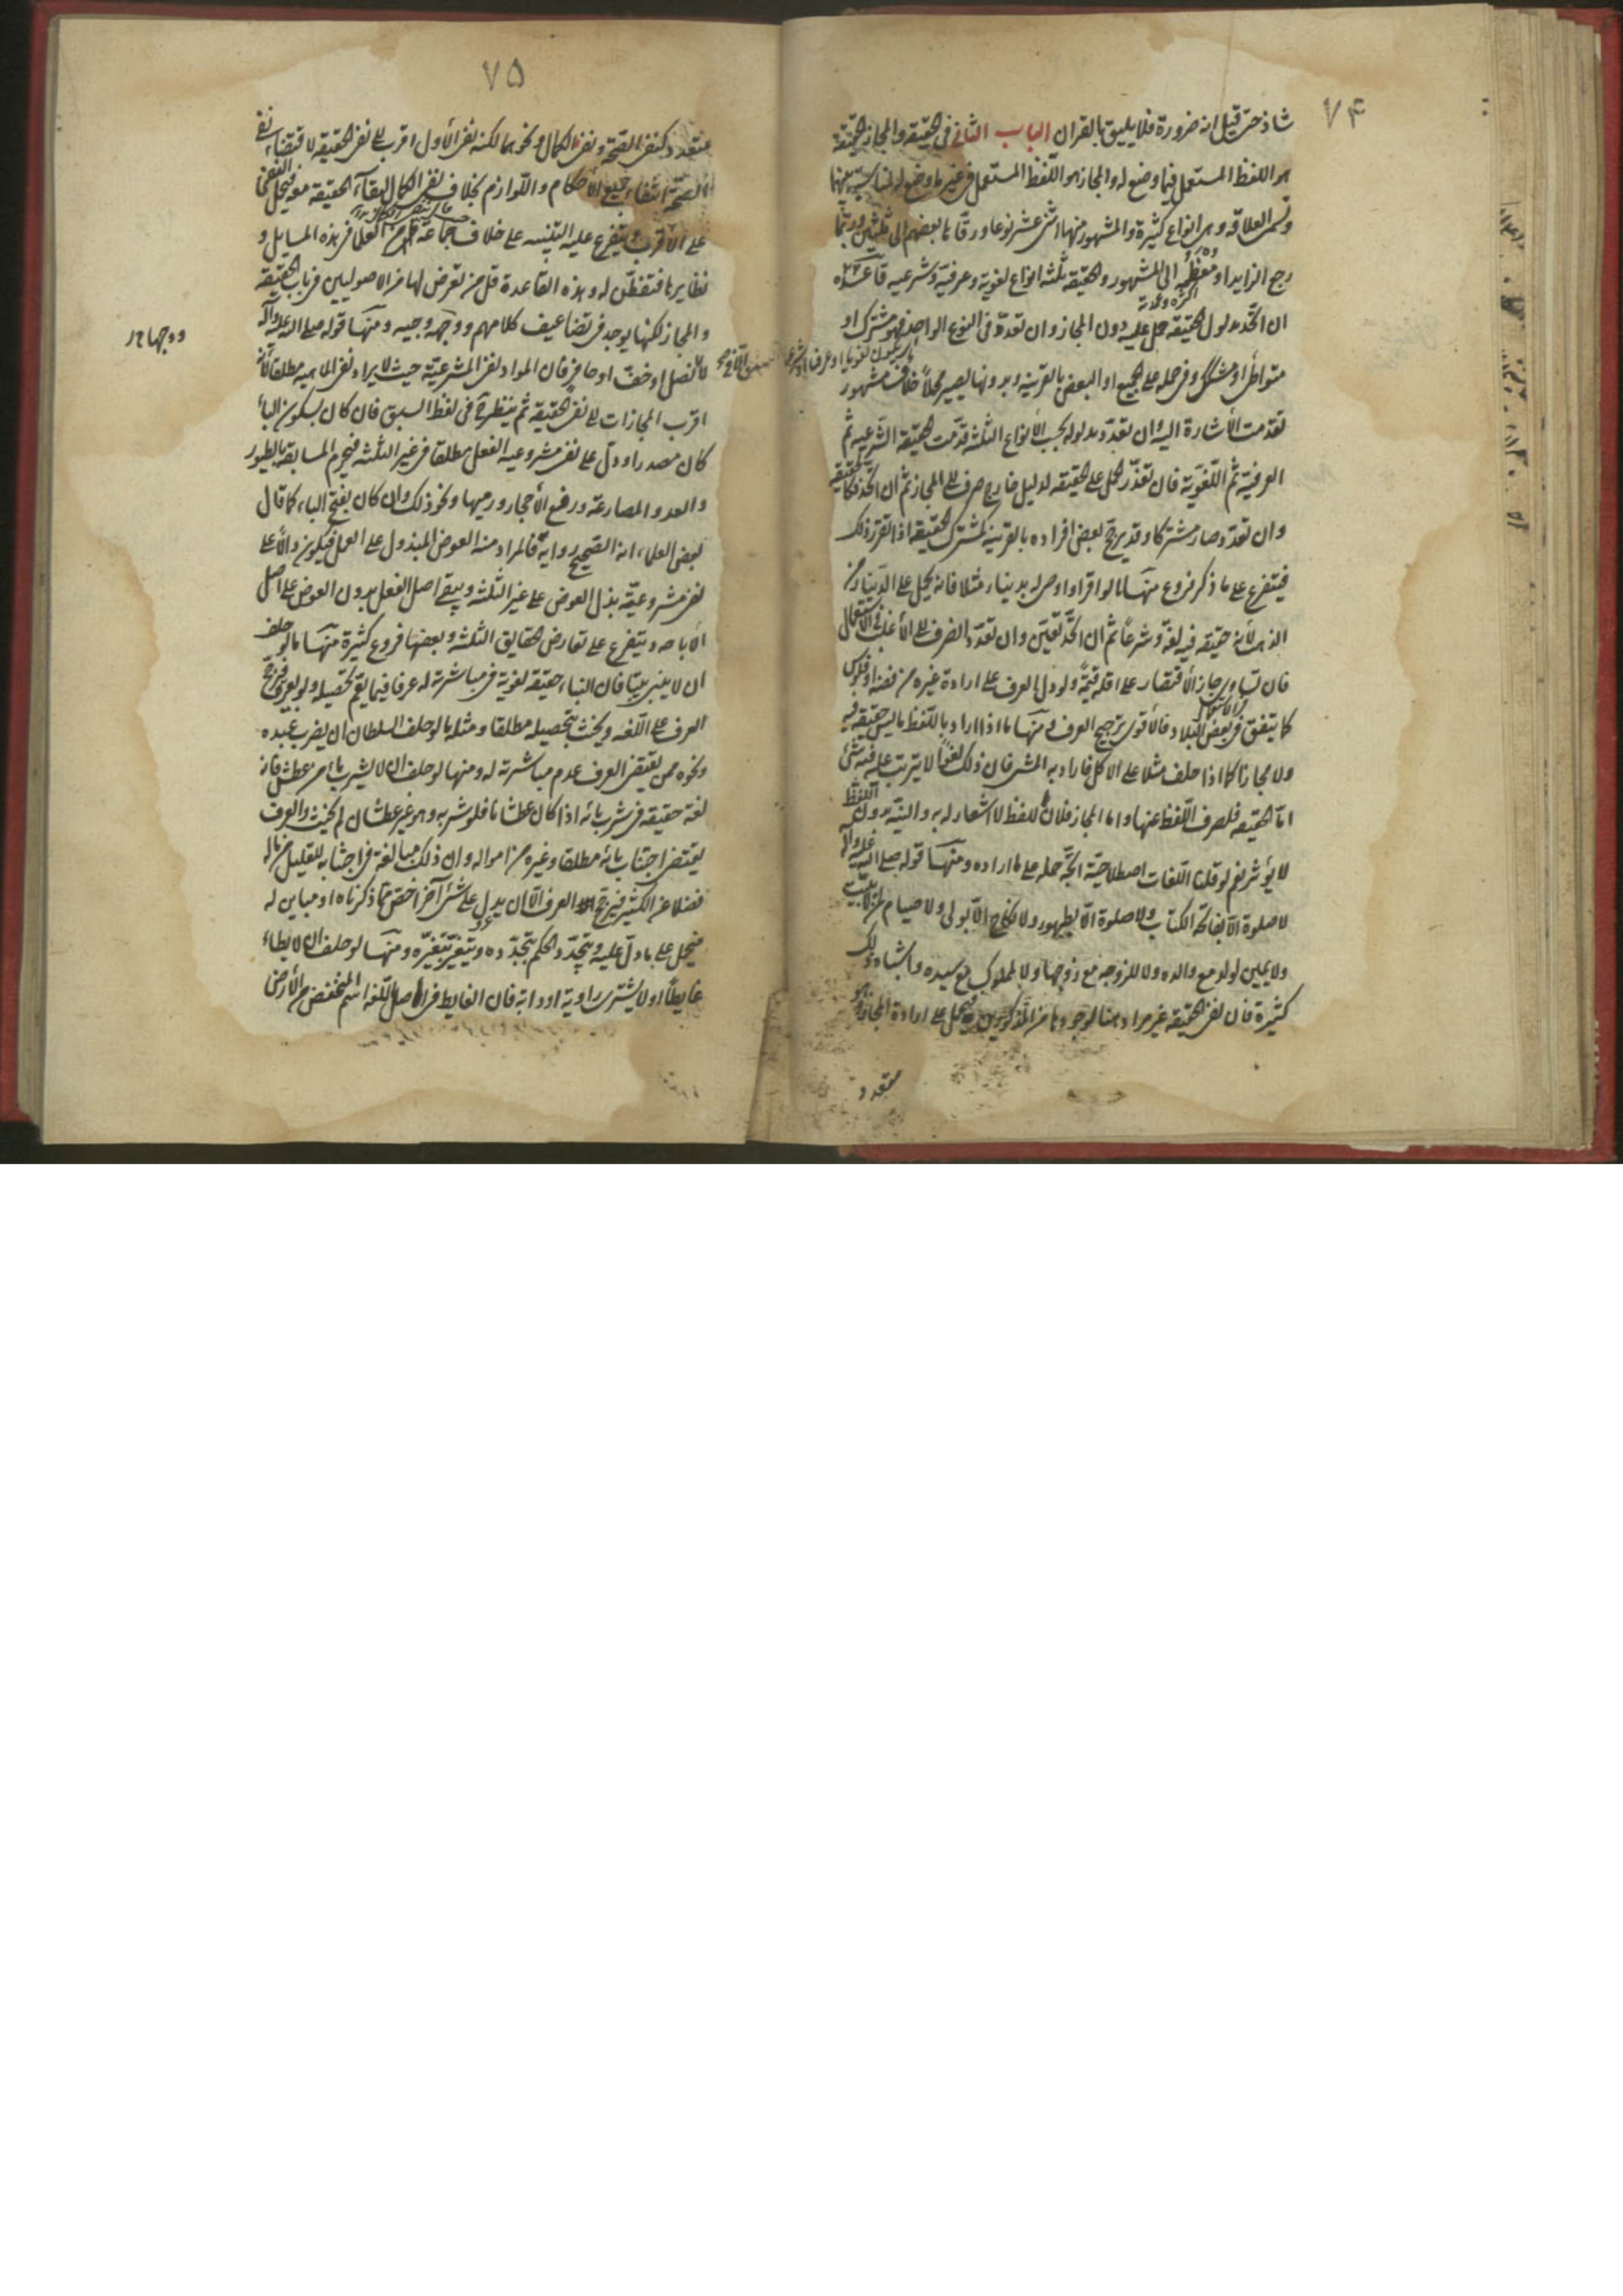 ٧۴
شاذ حتى قيل انه ضرورة فلا يليق بالقران الباب الثانى فى الحقيقة والمجاز الحقيقة
هو اللفظ المستعمل فيما وضع له والمجاز هو اللفظ المستعمل فى غير ما وضع له لمناسبة بينهما
وتسمى العلاقة وهى انواع كثيرة والمشهور منها اثنى عشر نوعا ورقاها بعضهم الى ثلثين وربما
رجع الزايد او معظمه الى المشهور والحقيقة ثلثة انواع لغوية وعرفية وشرعيه قاعده
ان اتحد مدلول الحقيقة حمل عليه دون المجاز وان تعدد فى النوع الواحد فهو مشترك او
متواطى او مشكك وفى حمله على الجميع او البعض بالقرينه وبدونها يصير مجملا خلاف مشهور
تقدمت الأشارة اليه وان تعدد مدلوله بحسب الأنواع الثلثة قدمت الحقيقة الشرعيه ثم
العرفية ثم اللغوية فان تعذر الحمل على الحقيقه لدليل خارج صرف الى المجاز ثم ان اتحد فكالحقيقة
وان تعدد صار مشتركا وقد يرجح بعض افراده بالقرينه كمشترك الحقيقة اذا تقرر ذلك
فيتفرع على ما ذكر فروع منها ما لو اقر او اوصى له بدينار مثلا فانه يحمل على الدينار من
الذهب لأنه حقيقه فيه لغة وشرعا ثم ان اتحد تعين وان تعدد انصرف الى الأغلب فى الاستعمال
فان تساوى جاز الأقتصار على اقله قيمة ولو دل العرف على ارادة غيره من فضه او فلوس
كما يتفق فى بعض البلاد فالأقوى ترجيح العرف ومنها ما اذا اراد باللفظ ما ليس حقيقة فيه
ولا مجازا كما اذا حلف مثلا على الاكل فاراد به المشى فان ذلك لغوا لا يترتب عليه شئ
اما الحقيقه فلصرف اللفظ عنها واما المجاز فلأن اللفظ لا اشعار له به والنيه بدون اللفظ
لا يؤثر نعم لو قلنا اللغات اصطلاحية اتجه حمله على ما اراده ومنها قوله صلى الله عليه وآله
لا صلوة الا بفاتحة الكتاب ولا صلوة الا بطهور ولا نكاح الا بولى ولا صيام لمن لا يبيت
ولا يمين لولد مع والده ولا للزوجه مع زوجها ولا لمملوك مع سيده واشباه ذلك
كثيرة فان نفى الحقيقه غير مراد هنا لوجودها من المذكورين فيحمل على ارادة المجاز وهو
متعدد
٧۵
متعدد كنفى الصحة ونفى الكمال ونحوهما لكنه نفى الأول اقرب الى نفى الحقيقه لاقتضاء نفى
الصحة انتفاء جميع الأحكام واللوازم بخلاف نفى الكمال لبقاء الحقيقة معه فيحمل النفى
على الاقرب ويتفرع عليه التنبيه على خلاف جماعة من العلما فى هذه المسايل و
نظايرها فتفطن له وهذه القاعدة قل من تعرض لها من الاصوليين فى باب الحقيقه
والمجاز لكنها يوجد فى تضاعيف كلامهم ووجهه وجيه ومنها قوله صلى الله عليه وآله
لا نصل او خف او حافر فان المراد نفى المشرعية حيث لا يراد نفى الماهيه مطلقا لأنه
اقرب المجازات الى نفى الحقيقه ثم ينظر فى لفظ السبق فان كان بسكون الباء
كان مصدرا ودل على نفى مشروعيه الفعل مطلقا فى غير الثلثه فيحرم المسابقة بالطيور
والعدو والمصارعة ورفع الأحجار ورميها ونحو ذلك وان كان بفتح الباء كما قال
بعض العلماء انه الصحيح رواية فالمراد منه العوض المبذول على العمل فيكون دالا على
نفى مشروعية بذل العوض على غير الثلثه ويبقى اصل الفعل بدون العوض على اصل
الأباحه ويتفرع على تعارض الحقايق الثلثه وبعضها فروع كثيرة منها ما لو حلف
ان لا يبنى بيتا فان البناء حقيقه لغوية فى مباشرته له عرفا فيما يعم تحصيله ولو بغيره فيرجح
العرف على اللغه ويحنث بتحصيله مطلقا ومثله ما لو حلف السلطان ان يضرب عبده
ونحوه ممن يقتضى العرف عدم مباشرته له ومنها لو حلف ان لا يشرب ماء من عطش فان
لغة حقيقه فى شرب مائه اذا كان عطشانا فلو شربه وهو غير عطشان لم يحنث والعرف
يقتضى اجتناب مائه مطلقا وغيره من امواله وان ذلك مبالغة فى اجتنابه للقليل من ماله
فضلا عن الكثير فيرجح العرف الا ان يدل على شئ آخر اخص مما ذكرناه او مباين له
فيحمل على ما دل عليه ويتجدد الحكم بتجدده ويتغير بتغيره ومنها لو حلف ان لا يطاء
غايطا او لا يشترى راوية او دابة فان الغايط فى اصل اللغه اسم المنخفض من الأرض